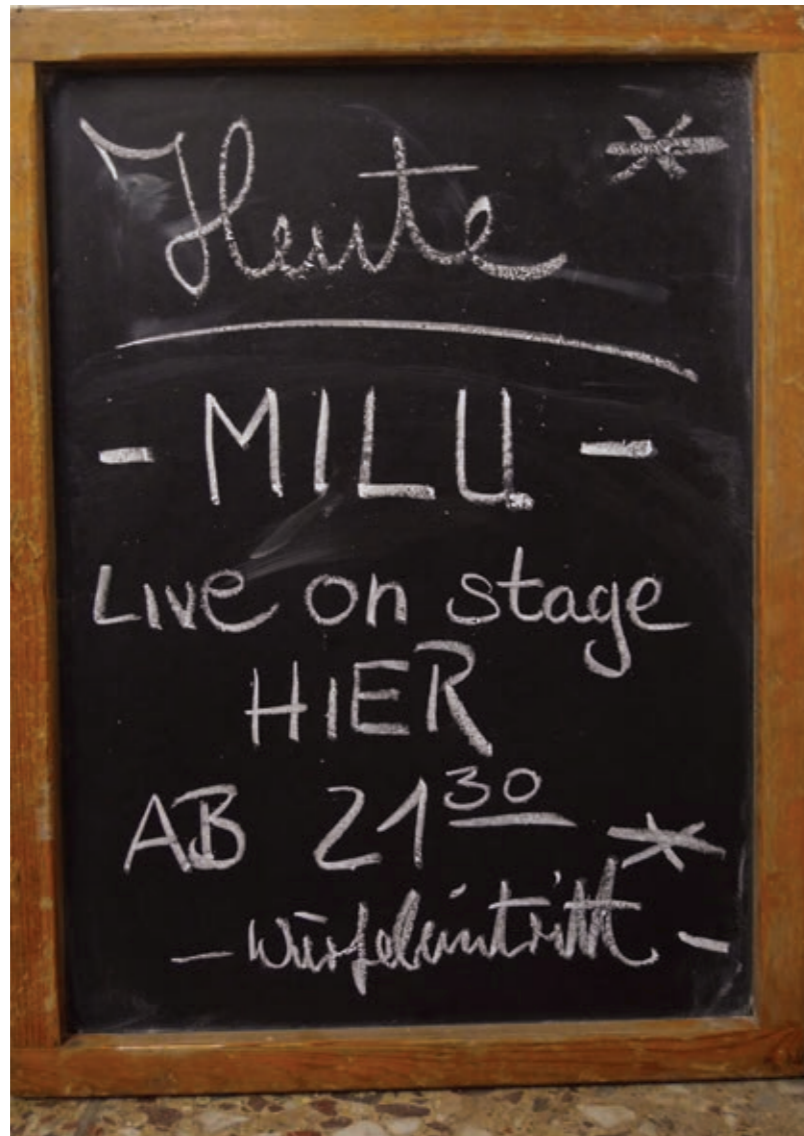 Heute *
- MILU -
Live on stage
HIER
AB 21 30 *
- Würfeleintritt -